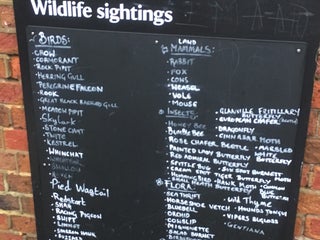 Wildlife sightings
BIRDS:
- CROW
- CORMORANT
- ROCK PIPIT
- HERRING GULL
- PEREGRINE FALCON
- ROOK
- GREAT BLACK BACKED GULL
- MEADOW PIPIT
- Skylark
- STONE CHAT
- TWITE
- KESTREL
- WHINCHAT
- Pied Wagtail
- Redstart
- SHAG
- RACING PIGEON
- BUFF
- LINNET
LAND
MAMMALS:
- RABBIT
- FOX
- COWS
- WEASEL
- VOLE
- MOUSE
INSECTS:
- HONEY BEE
- BUMBLE BEE
- ROSE CHAFER BEETLE
- PAINTED LADY BUTTERFLY
- RED ADMIRAL BUTTERFLY
- SPITTLE BUG
- CREAM SPOT TIGER BUTTERFLY
- GLANVILLE FRITILLARY BUTTERFLY
- EUROPEAN CHAFER (BEETLE)
- DRAGONFLY
- MARBLED WHITE BUTTERFLY
- SIX SPOT BURNETT MOTH
FLORA:
- SEA THRIFT
- HORSESHOE VETCH
- BLUEBELL
- ORCHID
- COWSLIP
- MIGNONETTE
- SALAD BURNET
- Wild Thyme
- HOUNDS TONGUE
- VIPERS BUGLOSS
- GENTIANA